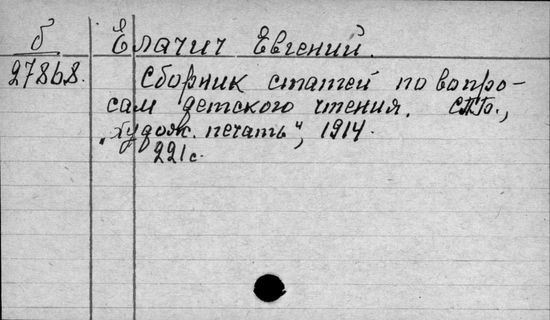 б
27868.
Елачич Евгений.
Сборник статей по вопро-
сам детского чтения. СПБ.,
„Худож. печать", 1914.
221 с.